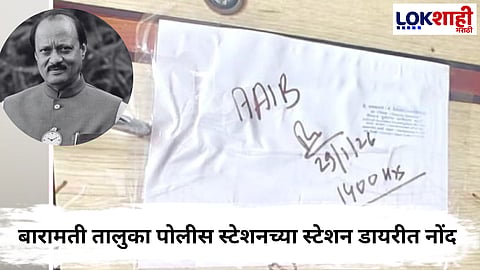 LOKशाही
मराठी
AAIB
29/1/26
1400 Hrs
बारामती तालुका पोलीस स्टेशनच्या स्टेशन डायरीत नोंद